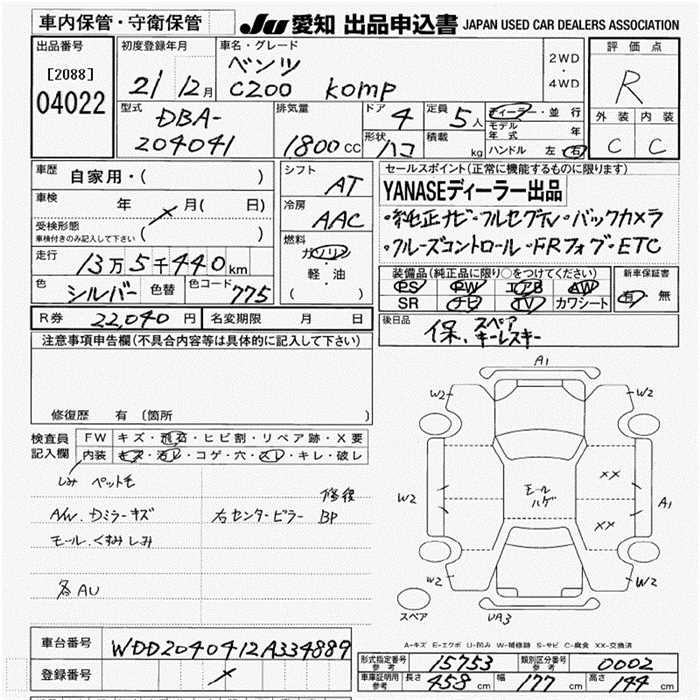 車内保管・守衛保管
JU 愛知 出品申込書 JAPAN USED CAR DEALERS ASSOCIATION
出品番号
[2088]
04022
初度登録年月
21 12月
車名・グレード
ベンツ
C200 KOMP
2WD
・
4WD
評価点
R
外装 内装
C C
型式
DBA-
204041
排気量
1800 CC
ドア
4
形状
ハコ
定員
5 人
積載
kg
ディーラー・並行
モデル年式 年
ハンドル 左・右
車歴
自家用・( )
車検
年 月( 日)
受検形態
車検付きのみ記入して下さい
( )
走行
13万5千440km
色
シルバー
色替
色コード
775
シフト
AT
冷房
AAC
燃料
ガソリン
軽・油
( )
セールスポイント(正常に機能するものに限ります)
YANASEディーラー出品
・純正ナビ・フルセグTV・バックカメラ
・クルーズコントロール・FRフォグ・ETC
装備品(純正品に限り○をつけてください)
PS PW エアB AW
SR ナビ TV カワシート
新車保証書
有・無
R券 22,040 円
名変期限 月 日
後日品
保、スペアキーレスキー
注意事項申告欄(不具合内容等は具体的に記入して下さい)
修復歴 有(箇所 )
検査員
記入欄
FW キズ・飛石・ヒビ割・リペア跡・X要
内装 キズ・汚レ・コゲ・穴・スレ・キレ・破レ
しみ ペット毛
修復
A/W. Dミラーキズ
右センターピラー BP
モール、くすみ しみ
各AU
A1
W2
W2
W2
A1
W2
W2
UA3
XX
XX
モール
ハゲ
スペア
A-キズ E-エクボ U-凹み W-補修跡 S-サビ C-腐食 XX-交換済
車台番号 WDD2040412A334889
登録番号
形式指定番号
参考
15753
類別区分番号
参考
0002
車庫証明用
参考
長さ 458 cm 幅 177 cm 高さ 144 cm